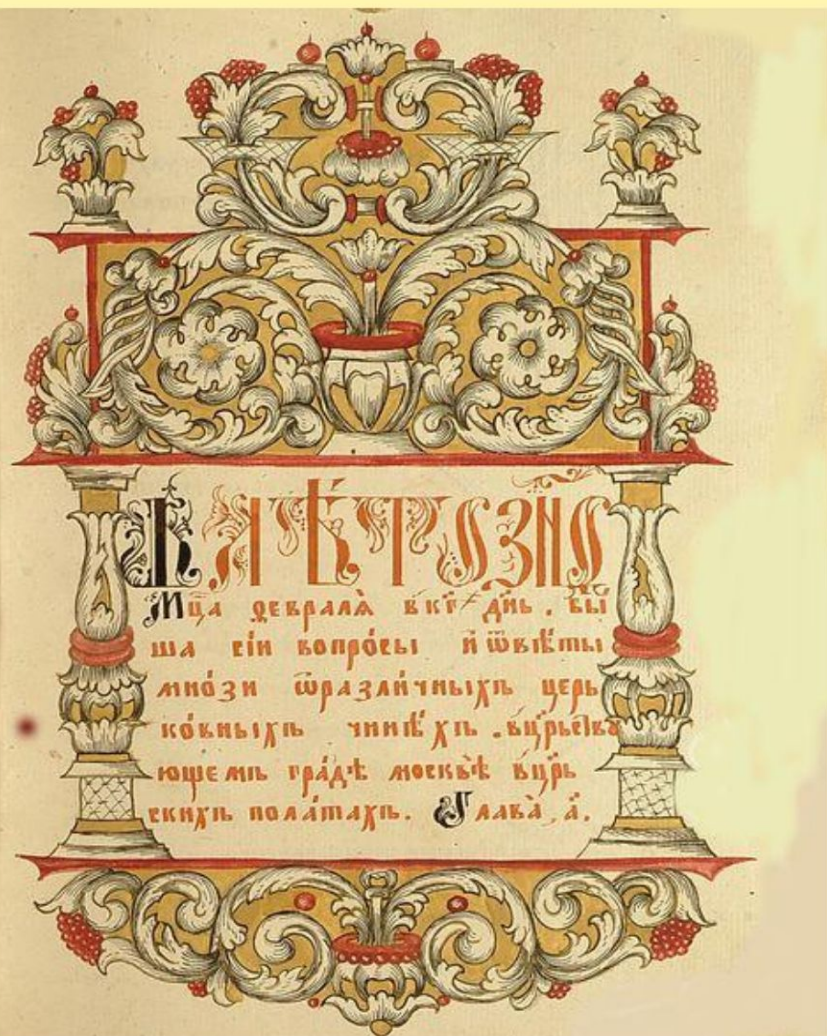 В лѣт ҂знѳ
Мц҃а февралѧ̀ вкг҃ дн҃ь . бы
ша сїи вопро́сы и҆ ѿвѣ́ты
мно́зи ѿразли́чныхъ церь
ко́вныхъ чинѣ́хъ . вцр҃ьствꙋ
ющемъ гра́дѣ москвѣ̀ вцр҃ь
скихъ пола́тахъ. Глава̀, а҃.